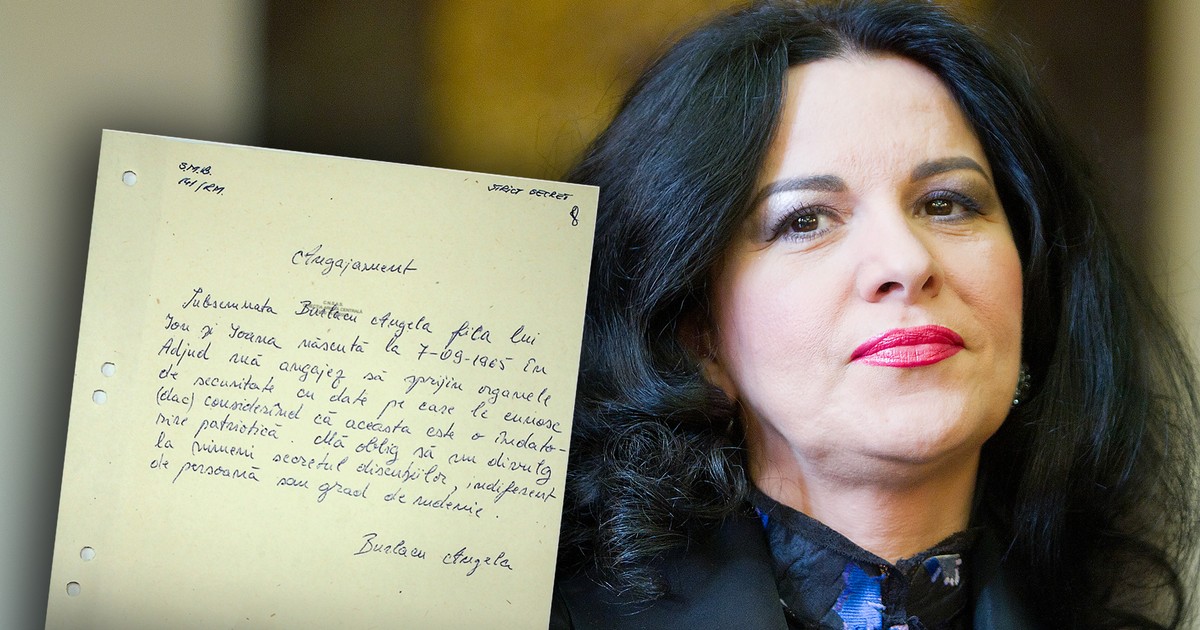 S.M.B.
STRICT SECRET
8
Angajament
Subsemnata Burlacu Angela fiica lui
Ion și Ioana născută la 7-09-1965 în
Adjud mă angajez să sprijin organele
de securitate cu date pe care le cunosc
(dac) considerînd că aceasta este o îndato-
rire patriotică. Mă oblig să nu divulg
la nimeni secretul discuțiilor, indiferent
de persoană sau grad de rudenie.
Burlacu Angela